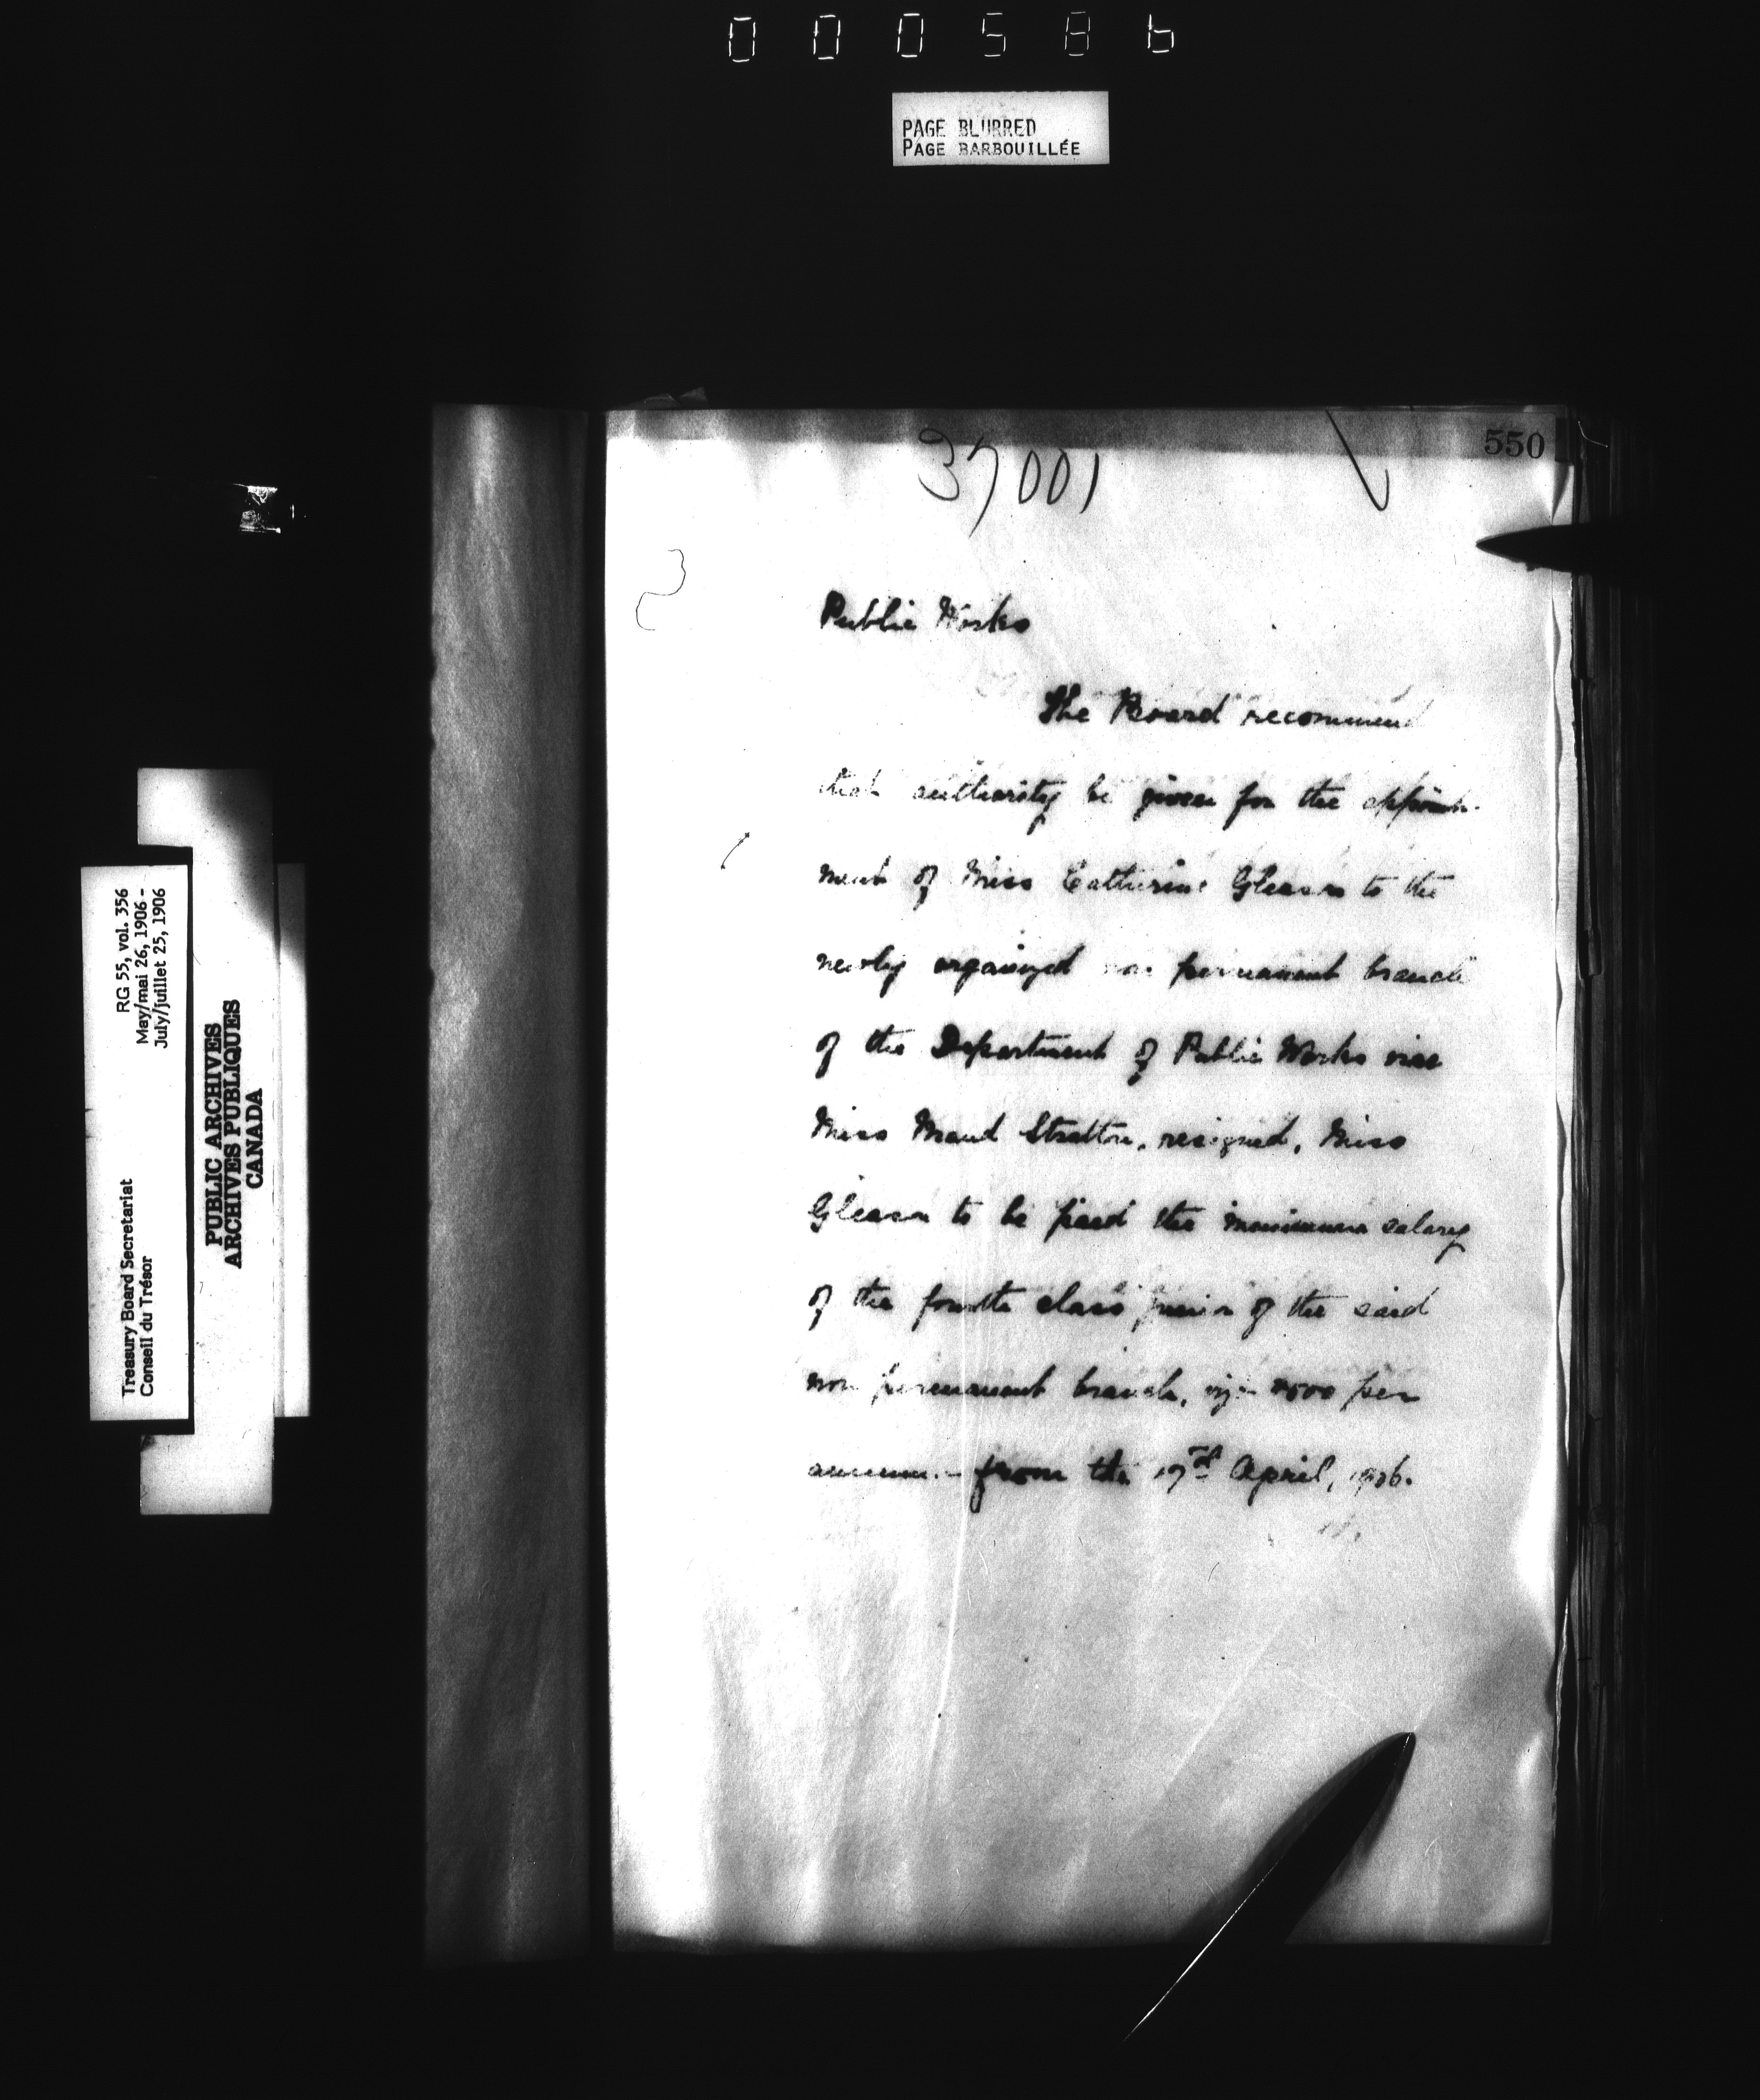 000586
PAGE BLURRED
PAGE BARBOUILLÉE
550
37001
Public Works
The Board recommend
that authority be given for the appoint-
ment of Miss Catherine Gleason to the
newly organized non permanent branch
of the Department of Public Works vice
Miss Maud Stratton, resigned, Miss
Gleason to be paid the minimum salary
of the fourth class junior of the said
non permanent branch, viz:- $500 per
annum from the 17th April, 1906.
RG 55, vol. 356
May/mai 26, 1906 -
July/juillet 25, 1906
Treasury Board Secretariat
Conseil du Trésor
PUBLIC ARCHIVES
ARCHIVES PUBLIQUES
CANADA